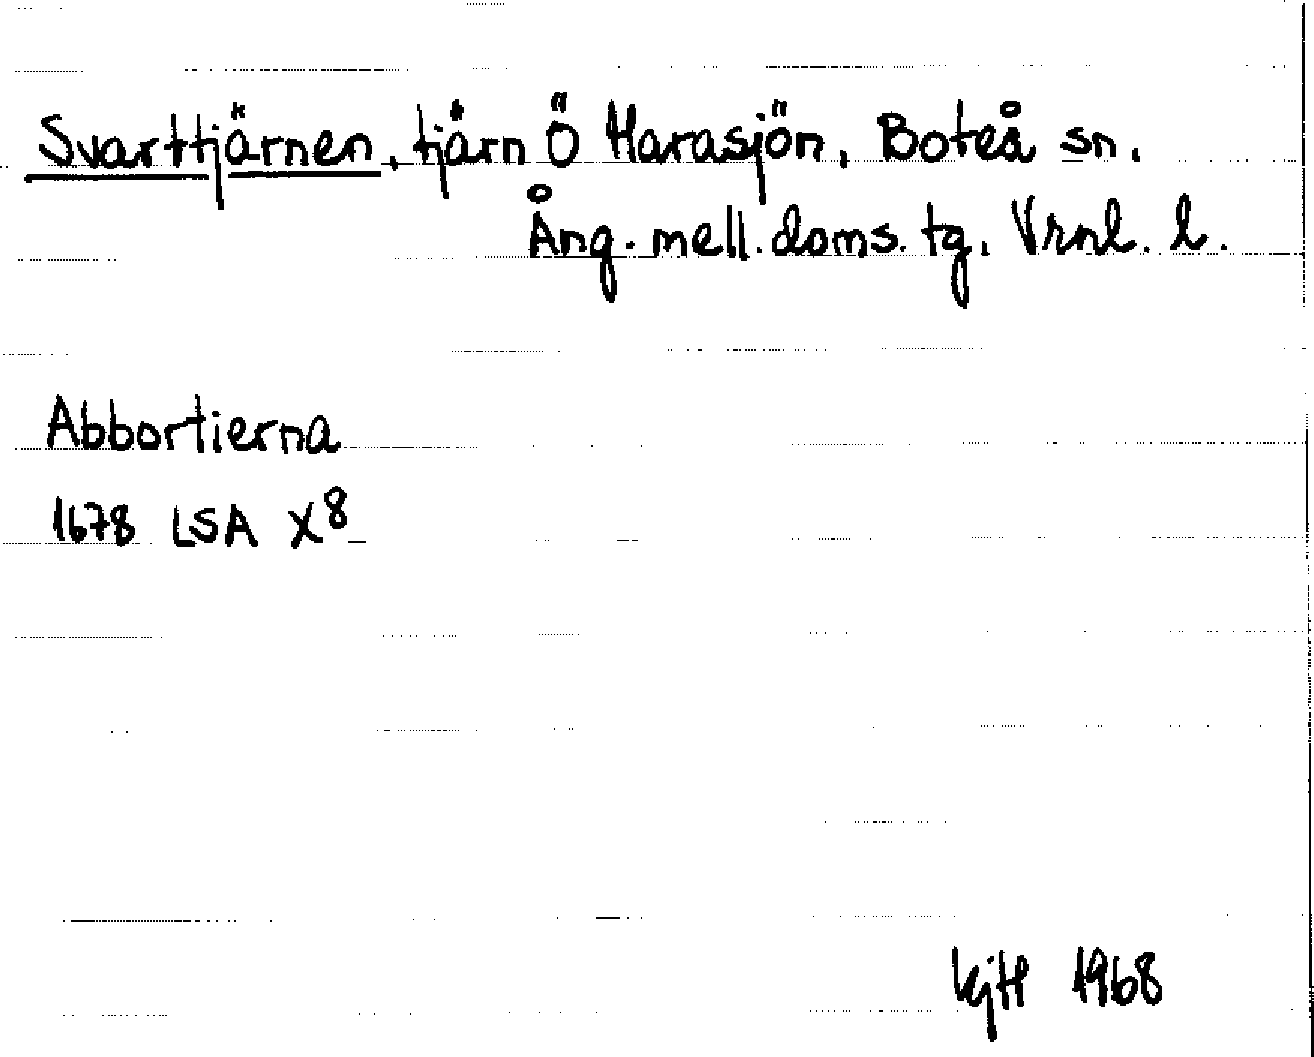 Svarttjärnen, tjärn Ö Harasjön, Boteå sn.
Ång. mell. doms. tg. Vrnl. l.
Abbortierna
1678 LSA X8
KjH 1968